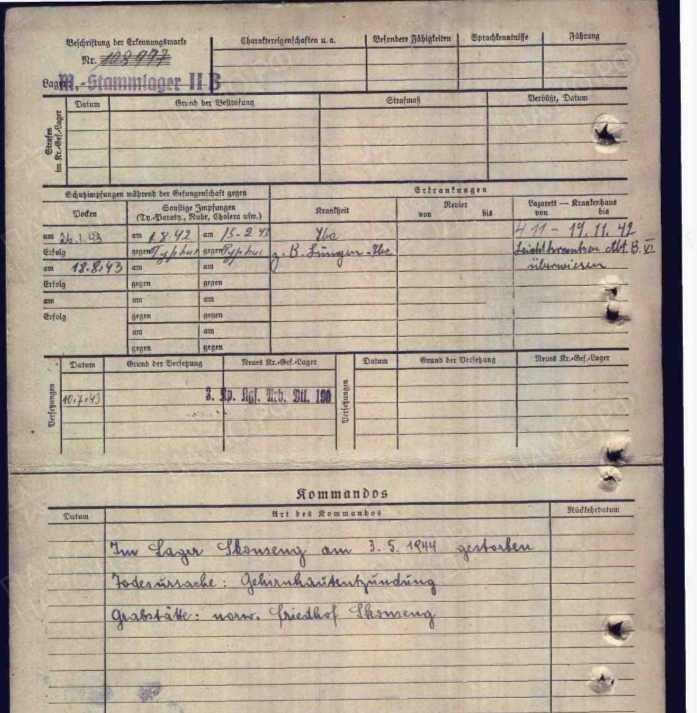 Beschriftung der Erkennungsmarke
Charaktereigenschaften u. a.
Besondere Fähigkeiten
Sprachkenntnisse
Führung
Nr. 108977
Lager M.-Stammlager II B
Strafen im Kr.-Gef.-Lager
Datum
Grund der Bestrafung
Strafmaß
Verbüßt, Datum
Schutzimpfungen während der Gefangenschaft gegen
Erkrankungen
Pocken
Sonstige Impfungen
(Ty.-Paraty., Ruhr, Cholera usw.)
Krankheit
Revier
von bis
Lazarett — Krankenhaus
von bis
am 26.1.43 am 8.42 am 15-2 43 Tbc 4.11 - 19.11.42
Erfolg gegen Typhus gegen Typhus z. B. Lungen-Tbc Abt. B. VI
am 18.8.43 am am überwiesen
Erfolg gegen gegen
am am am
Erfolg gegen gegen
am am
gegen gegen
Versetzungen
Datum
Grund der Versetzung
Neues Kr.-Gef.-Lager
Versetzungen
Datum
Grund der Versetzung
Neues Kr.-Gef.-Lager
10.7.43 3. Kp. Kgf. Arb. Btl. 190
Kommandos
Datum
Art des Kommandos
Rückkehrdatum
Im Lager Skonseng am 3. 5. 1944 gestorben
Todesursache: Gehirnhautentzündung
Grabstätte: norw. Friedhof Skonseng